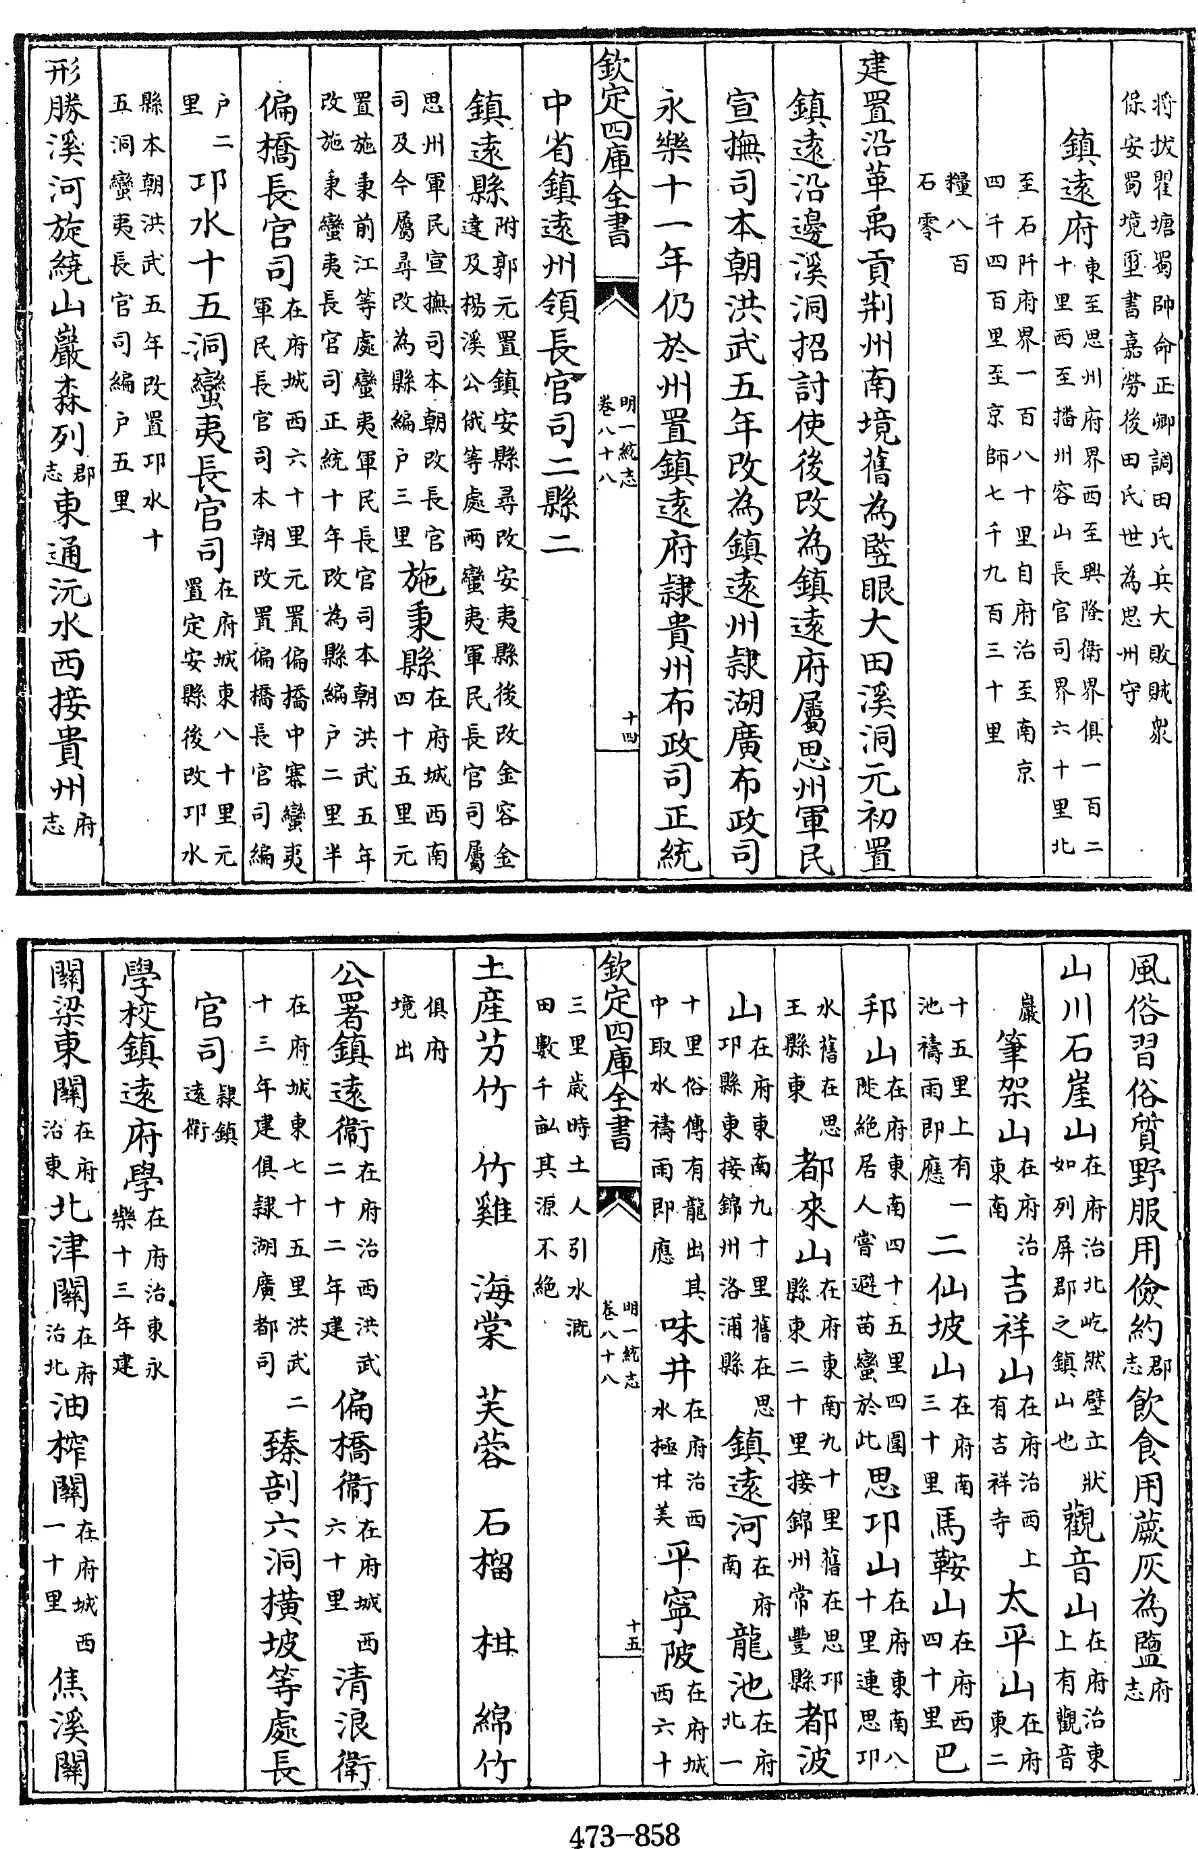 将拔瞿塘蜀帥命正卿調田氏兵大敗賊衆
保安蜀境璽書嘉勞後田氏世為思州守
鎮遠府東至思州府界西至興隆衛界俱一百二十里西至播州容山長官司界六十里北
至石阡府界一百八十里自府治至南京
四千四百里至京師七千九百三十里
糧八百
石零
建置沿革禹貢荆州南境舊為竪眼大田溪洞元初置
鎮遠沿邊溪洞招討使後改為鎮遠府屬思州軍民
宣撫司本朝洪武五年改為鎮遠州隷湖廣布政司
永樂十一年仍於州置鎮遠府隷貴州布政司正統
欽定四庫全書 明一統志卷八十八 十四
中省鎮遠州領長官司二縣二
鎮遠縣附郭元置鎮安縣尋改安夷縣後改金容金達及楊溪公俄等處兩蠻夷軍民長官司屬
思州軍民宣撫司本朝改長官司及今屬尋改為縣編户三里施秉縣在府城西南四十五里元
置施秉前江等處蠻夷軍民長官司本朝洪武五年
改施秉蠻夷長官司正統十年改為縣編户二里半
偏橋長官司在府城西六十里元置偏橋中寨蠻夷軍民長官司本朝改置偏橋長官司編
户二里卭水十五洞蠻夷長官司在府城東八十里元置定安縣後改卭水
縣本朝洪武五年改置卭水十
五洞蠻夷長官司編户五里
形勝溪河旋繞山巖森列郡志東通沅水西接貴州府志
風俗習俗質野服用儉約郡志飲食用蕨灰為鹽府志
山川石崖山在府治北屹然壁立狀如列屏郡之鎮山也觀音山在府治東上有觀音
巖筆架山在府治東南吉祥山在府治西上有吉祥寺太平山在府東二
十五里上有一池禱雨即應二仙坡山在府南三十里馬鞍山在府西四十里巴
邦山在府東南四十五里四圍陡絶居人嘗避苗蠻於此思卭山在府東南八十里連思卭
水舊在思王縣東都來山在府東南九十里舊在思卭縣東二十里接錦州常豐縣都波
山在府東南九十里舊在思卭縣東接錦州洛浦縣鎮遠河在府南龍池在府北一
十里俗傳有龍出其中取水禱雨即應味井在府治西水極甘美平寧陂在府城西六十
欽定四庫全書 明一統志卷八十八 十五
三里歲時土人引水溉
田數千畝其源不絶
土産芀竹 竹雞 海棠 芙蓉 石榴 柑 綿竹
俱府
境出
公署鎮遠衛在府治西洪武二十二年建偏橋衛在府城西六十里清浪衛
在府城東七十五里洪武二十三年建俱隷湖廣都司臻剖六洞横坡等處長
官司隷鎮遠衛
學校鎮遠府學在府治東永樂十三年建
關梁東關在府治東北津關在府治北油榨關在府城西一十里焦溪關
473-858